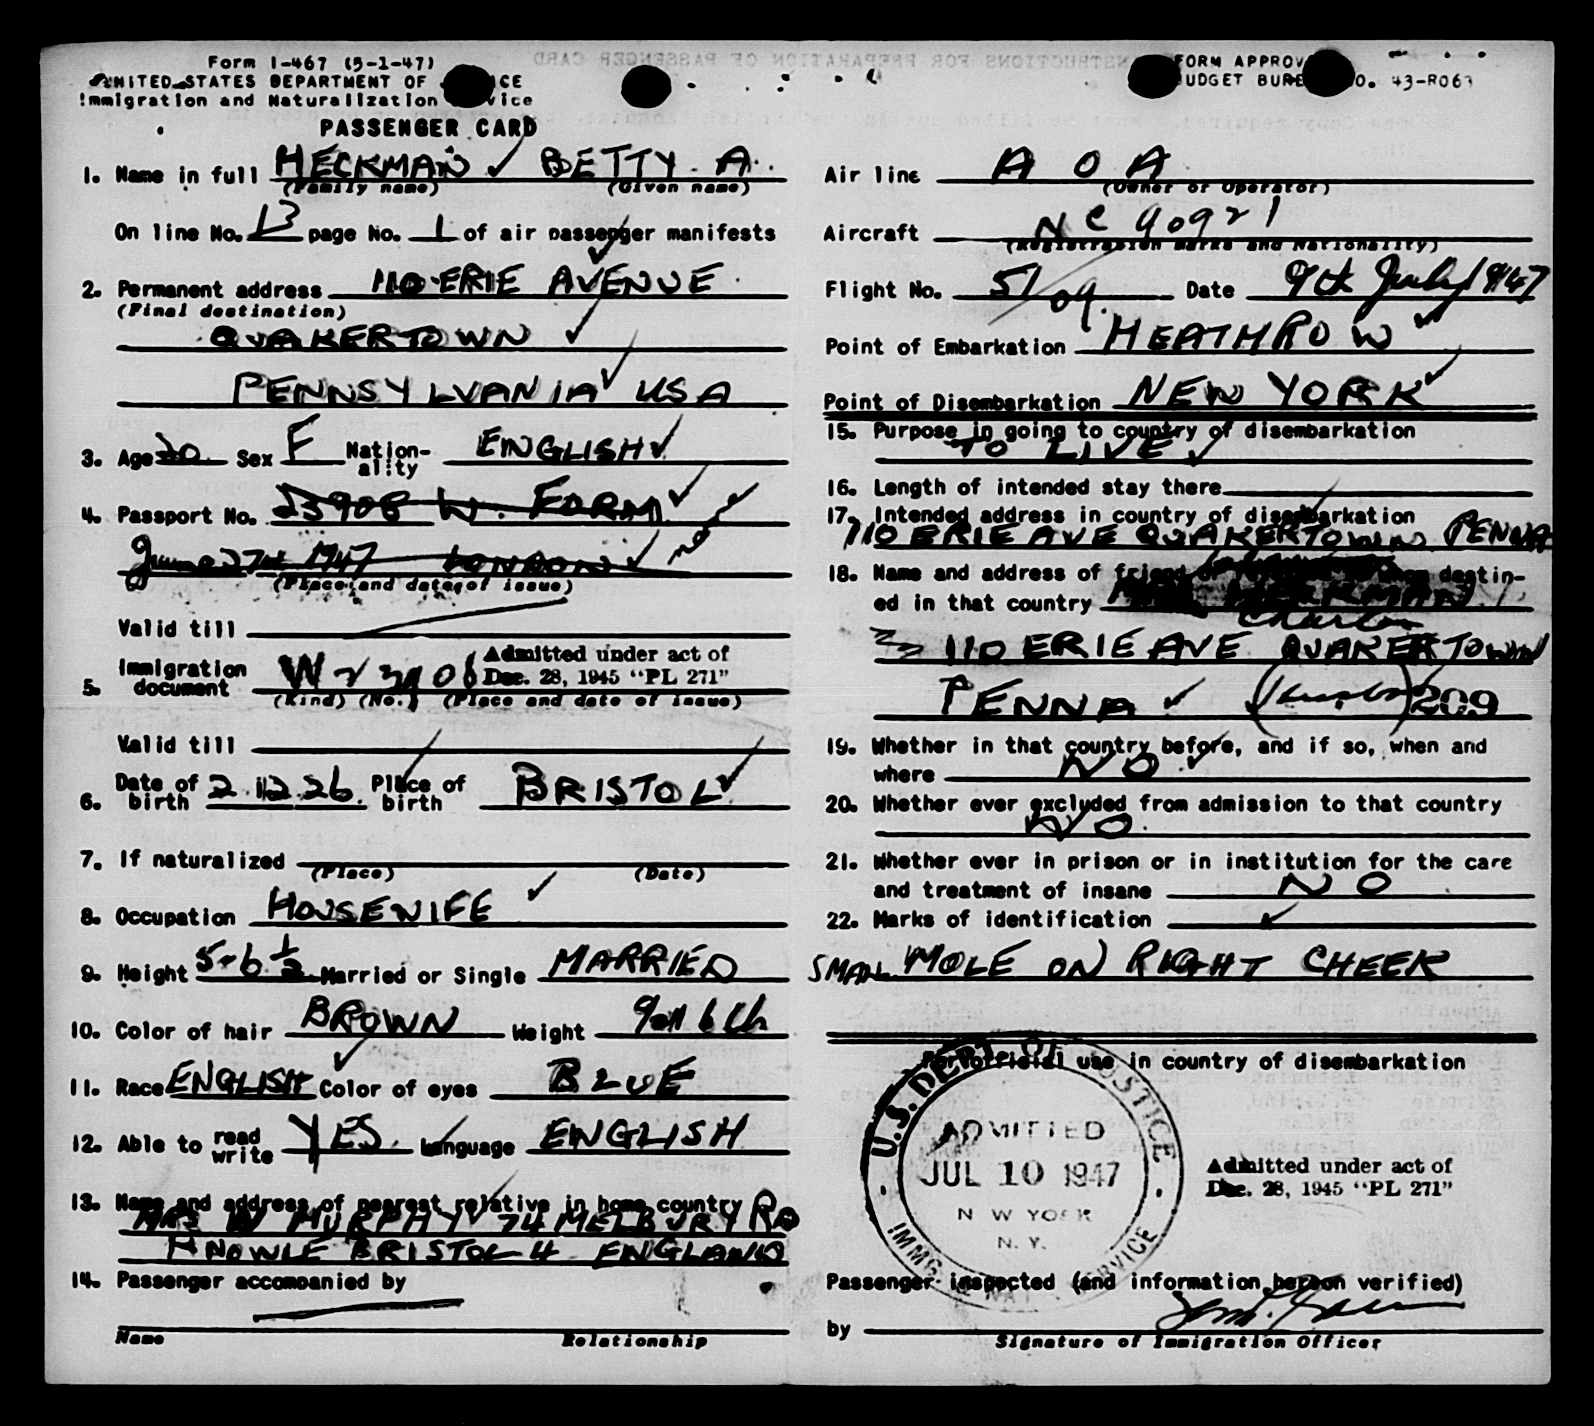 Form I-467 (5-1-47)
UNITED STATES DEPARTMENT OF
Immigration and Naturalization
PASSENGER CARD
1. Name in full HECKMAN BETTY A.
(Family name) (Given name)
On line No. 13 page No. 1 of air passenger manifests
2. Permanent address 110 ERIE AVENUE
(Final destination)
QUAKERTOWN
PENNSYLVANIA USA
3. Age 20 Sex F Nation-ality ENGLISH
4. Passport No. 23908 W. FORM
June 27th 1947 LONDON
(Place and date of issue)
Valid till
5. Immigration document W 23908 Admitted under act of Dec. 28, 1945 "PL 271"
(Kind) (No.) (Place and date of issue)
Valid till
6. Date of birth 2.12.26. Place of birth BRISTOL
7. If naturalized
(Place) (Date)
8. Occupation HOUSEWIFE
9. Height 5-6 1/2 Married or Single MARRIED
10. Color of hair BROWN Weight 9st 6 lb
11. Race ENGLISH Color of eyes BLUE
12. Able to read write YES. Language ENGLISH
13. Name and address of nearest relative in home country
MRS W MURPHY 74 MELBURY RD
KNOWLE BRISTOL 4 ENGLAND
14. Passenger accompanied by
Name Relationship
FORM APPROV
UDGET BURE O. 43-R063
Air line A O A
(Owner or Operator)
Aircraft NC 90921
(Registration marks and Nationality)
Flight No. 51/09. Date 9th July 1947
Point of Embarkation HEATHROW
Point of Disembarkation NEW YORK
15. Purpose in going to country of disembarkation
TO LIVE
16. Length of intended stay there
17. Intended address in country of disembarkation
110 ERIE AVE QUAKERTOWN PENNA
18. Name and address of friend or destin-
ed in that country HECKMAN
Charles
110 ERIE AVE QUAKERTOWN
PENNA (Husband) 209
19. Whether in that country before, and if so, when and
where NO
20. Whether ever excluded from admission to that country
NO.
21. Whether ever in prison or in institution for the care
and treatment of insane NO
22. Marks of identification
SMALL MOLE ON RIGHT CHEEK
For official use in country of disembarkation
U.S. DEPT. OF JUSTICE
ADMITTED
JUL 10 1947
NEW YORK
N. Y.
IMMIG. & NAT. SERVICE
Admitted under act of
Dec. 28, 1945 "PL 271"
Passenger inspected (and information hereon verified)
by
Signature of Immigration Officer